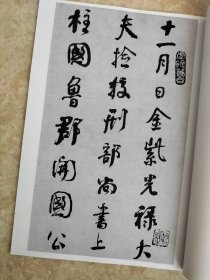 十一月日金紫光禄大
夫捡挍刑部尚書上
柱國魯郡開國公